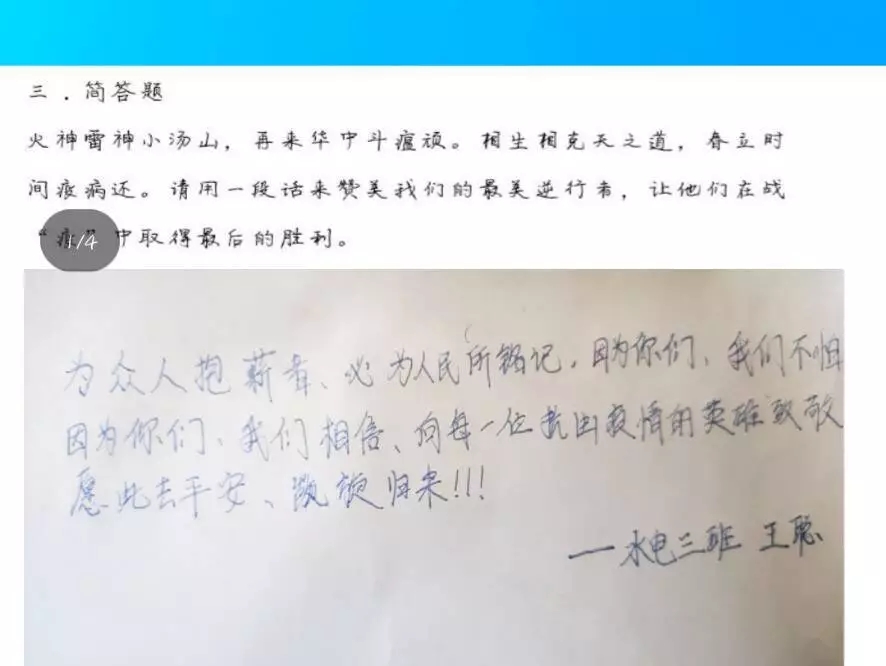 三 . 简答题
火神雷神小汤山，再来华中斗瘟顽。相生相克天之道，春立时
间疫病还。请用一段话来赞美我们的最美逆行者，让他们在战
“疫”中取得最后的胜利。
1/4
为众人抱薪者、必为人民所铭记，因为你们、我们不怕
因为你们、我们相信、向每一位抗击疫情的英雄致敬
愿此去平安、凯旋归来!!!
——水电三班 王聪